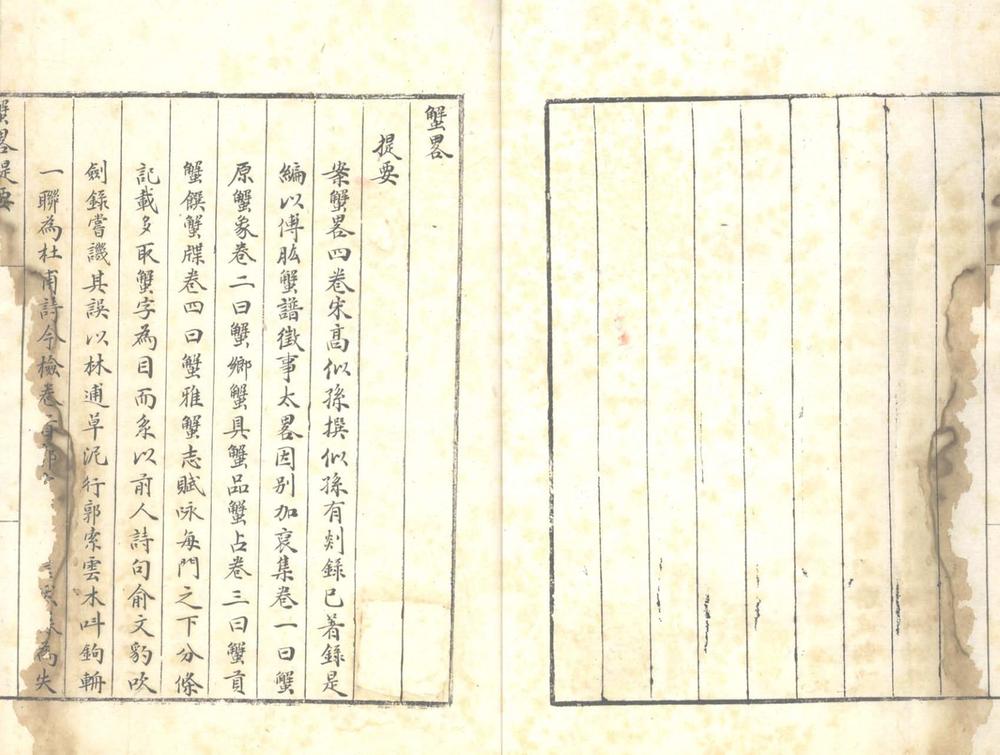 蟹畧
提要
案蟹畧四卷宋高似孫撰似孫有剡錄已著錄是
編以傅肱蟹譜徵事太畧因别加裒集卷一曰蟹
原蟹象卷二曰蟹鄉蟹具蟹品蟹占卷三曰蟹貢
蟹饌蟹牒卷四曰蟹雅蟹志賦咏每門之下分條
記載多取蟹字為目而系以前人詩句俞文豹吹
劍錄嘗譏其誤以林逋草泥行郭索雲木呌鉤輈
一聯為杜甫詩今檢卷首郭為失
蟹畧提要